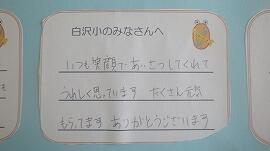 白沢小のみなさんへ
いつも笑顔であいさつしてくれて
うれしく思っています たくさん元気
もらってます ありがとうございます